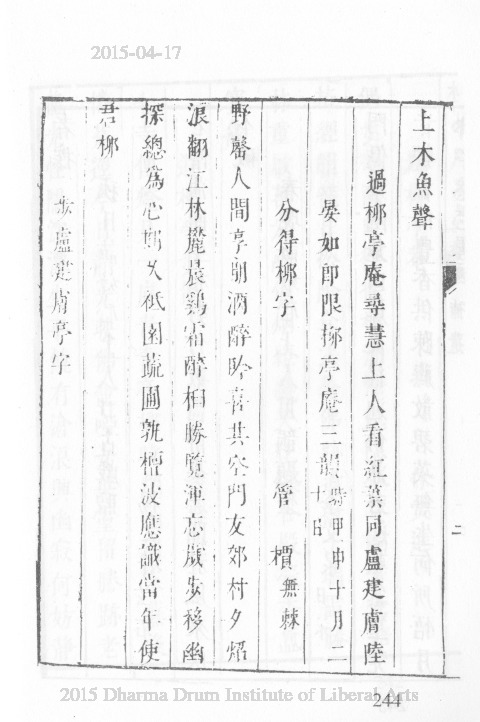 2015-04-17
上木魚聲
過椰亭庵尋慧上人看紅葉同盧建膚陸
晏如即限椰亭庵三韻時甲申十月二十五
分得椰字　管櫝無棘
野罄人間亭朝酒醉吟喜其空門友郊村夕炤
浪翻江林麗晨鷄霜醉相勝覽渾忘歲步移幽
探總為心 久祇園蔬圃孰檀波應識當年使
君椰
步盧建膚亭字
二
244
2015 Dharma Drum Institute of Liberal Arts